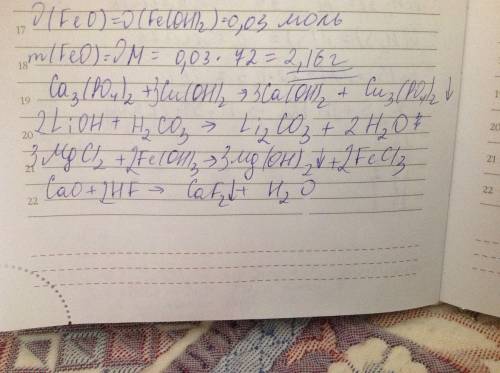 17 ν(FeO)=ν(Fe(OH)₂)=0,03 моль
18 m(FeO)=νM = 0,03·72=2,16г
19 Ca₃(PO₄)₂+3Cu(OH)₂→3Ca(OH)₂ + Cu₃(PO₄)₂↓
20 2LiOH+H₂CO₃ → Li₂CO₃ + 2H₂O
21 3MgCl₂+2Fe(OH)₃→3Mg(OH)₂↓+2FeCl₃
22 CaO+2HF → CaF₂↓+ H₂O